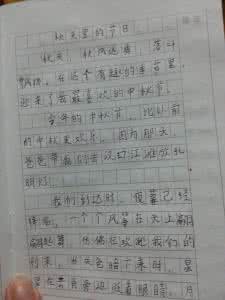 秋天里的节日
秋天，秋风送爽，落叶
飘飘，在这个有趣的季节里，
迎来了我最喜欢的中秋节！
今年的中秋节，比以前
的中秋更欢乐，因为那天，
爸爸带着我们去汉口江滩放孔
明灯。
我们到达时，夜幕已经
降临，一个个风筝在天上翩
翩起舞，仿佛在欢迎我们的
到来，当天色暗下来时，星
星在云月旁边眨着眼睛，月